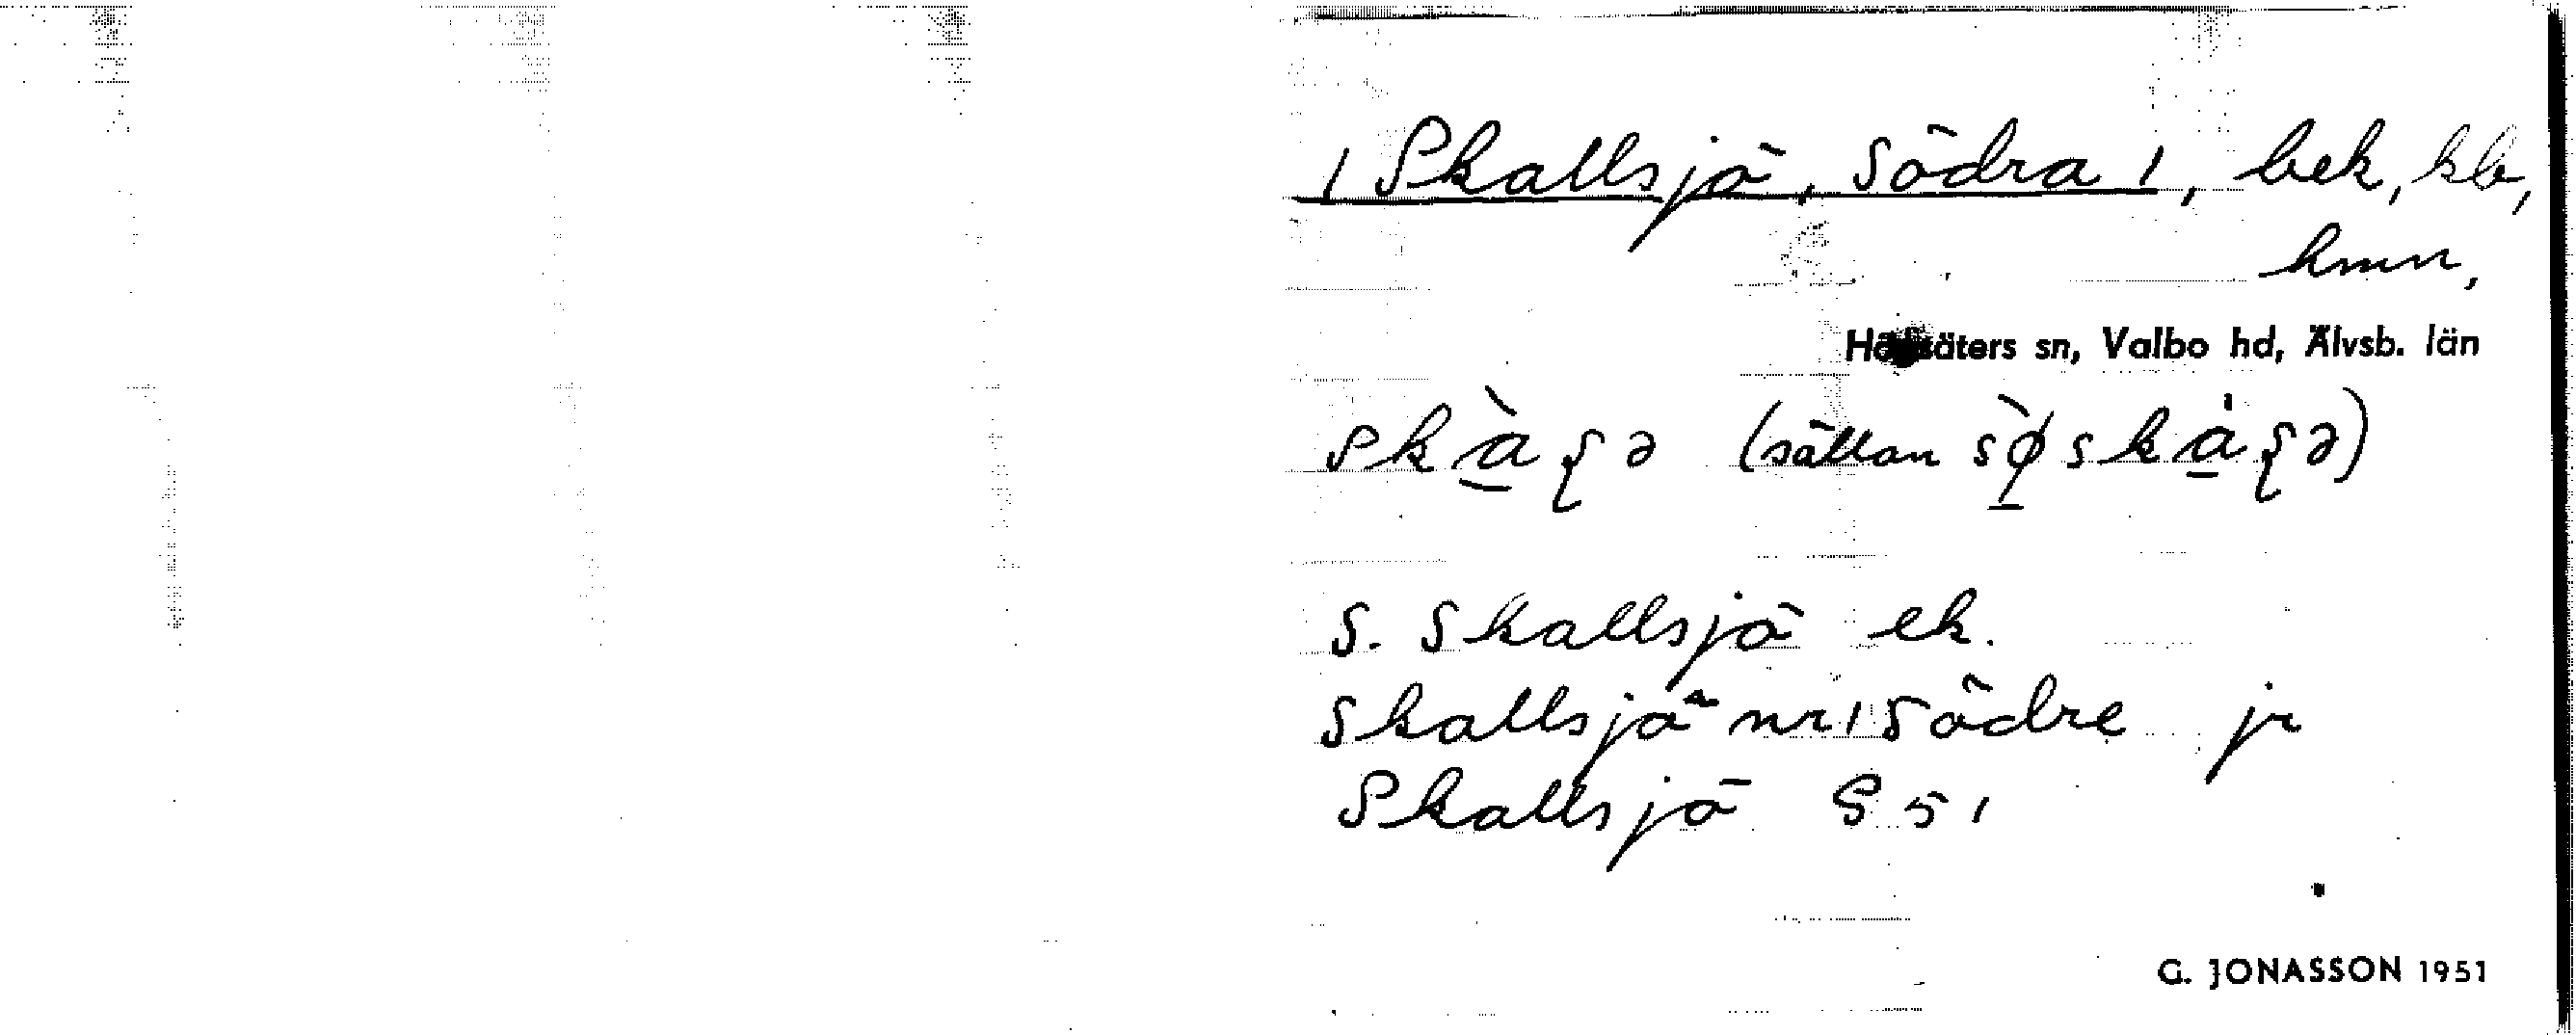 1 Skallsjö, Södra 1, bek, kb,
hmn,
Högsäters sn, Valbo hd, Älvsb. län
(sällan
S. Skallsjö ek.
Skallsjö nr 1 Södre jr
Skallsjö S 5 1
G. JONASSON 1951